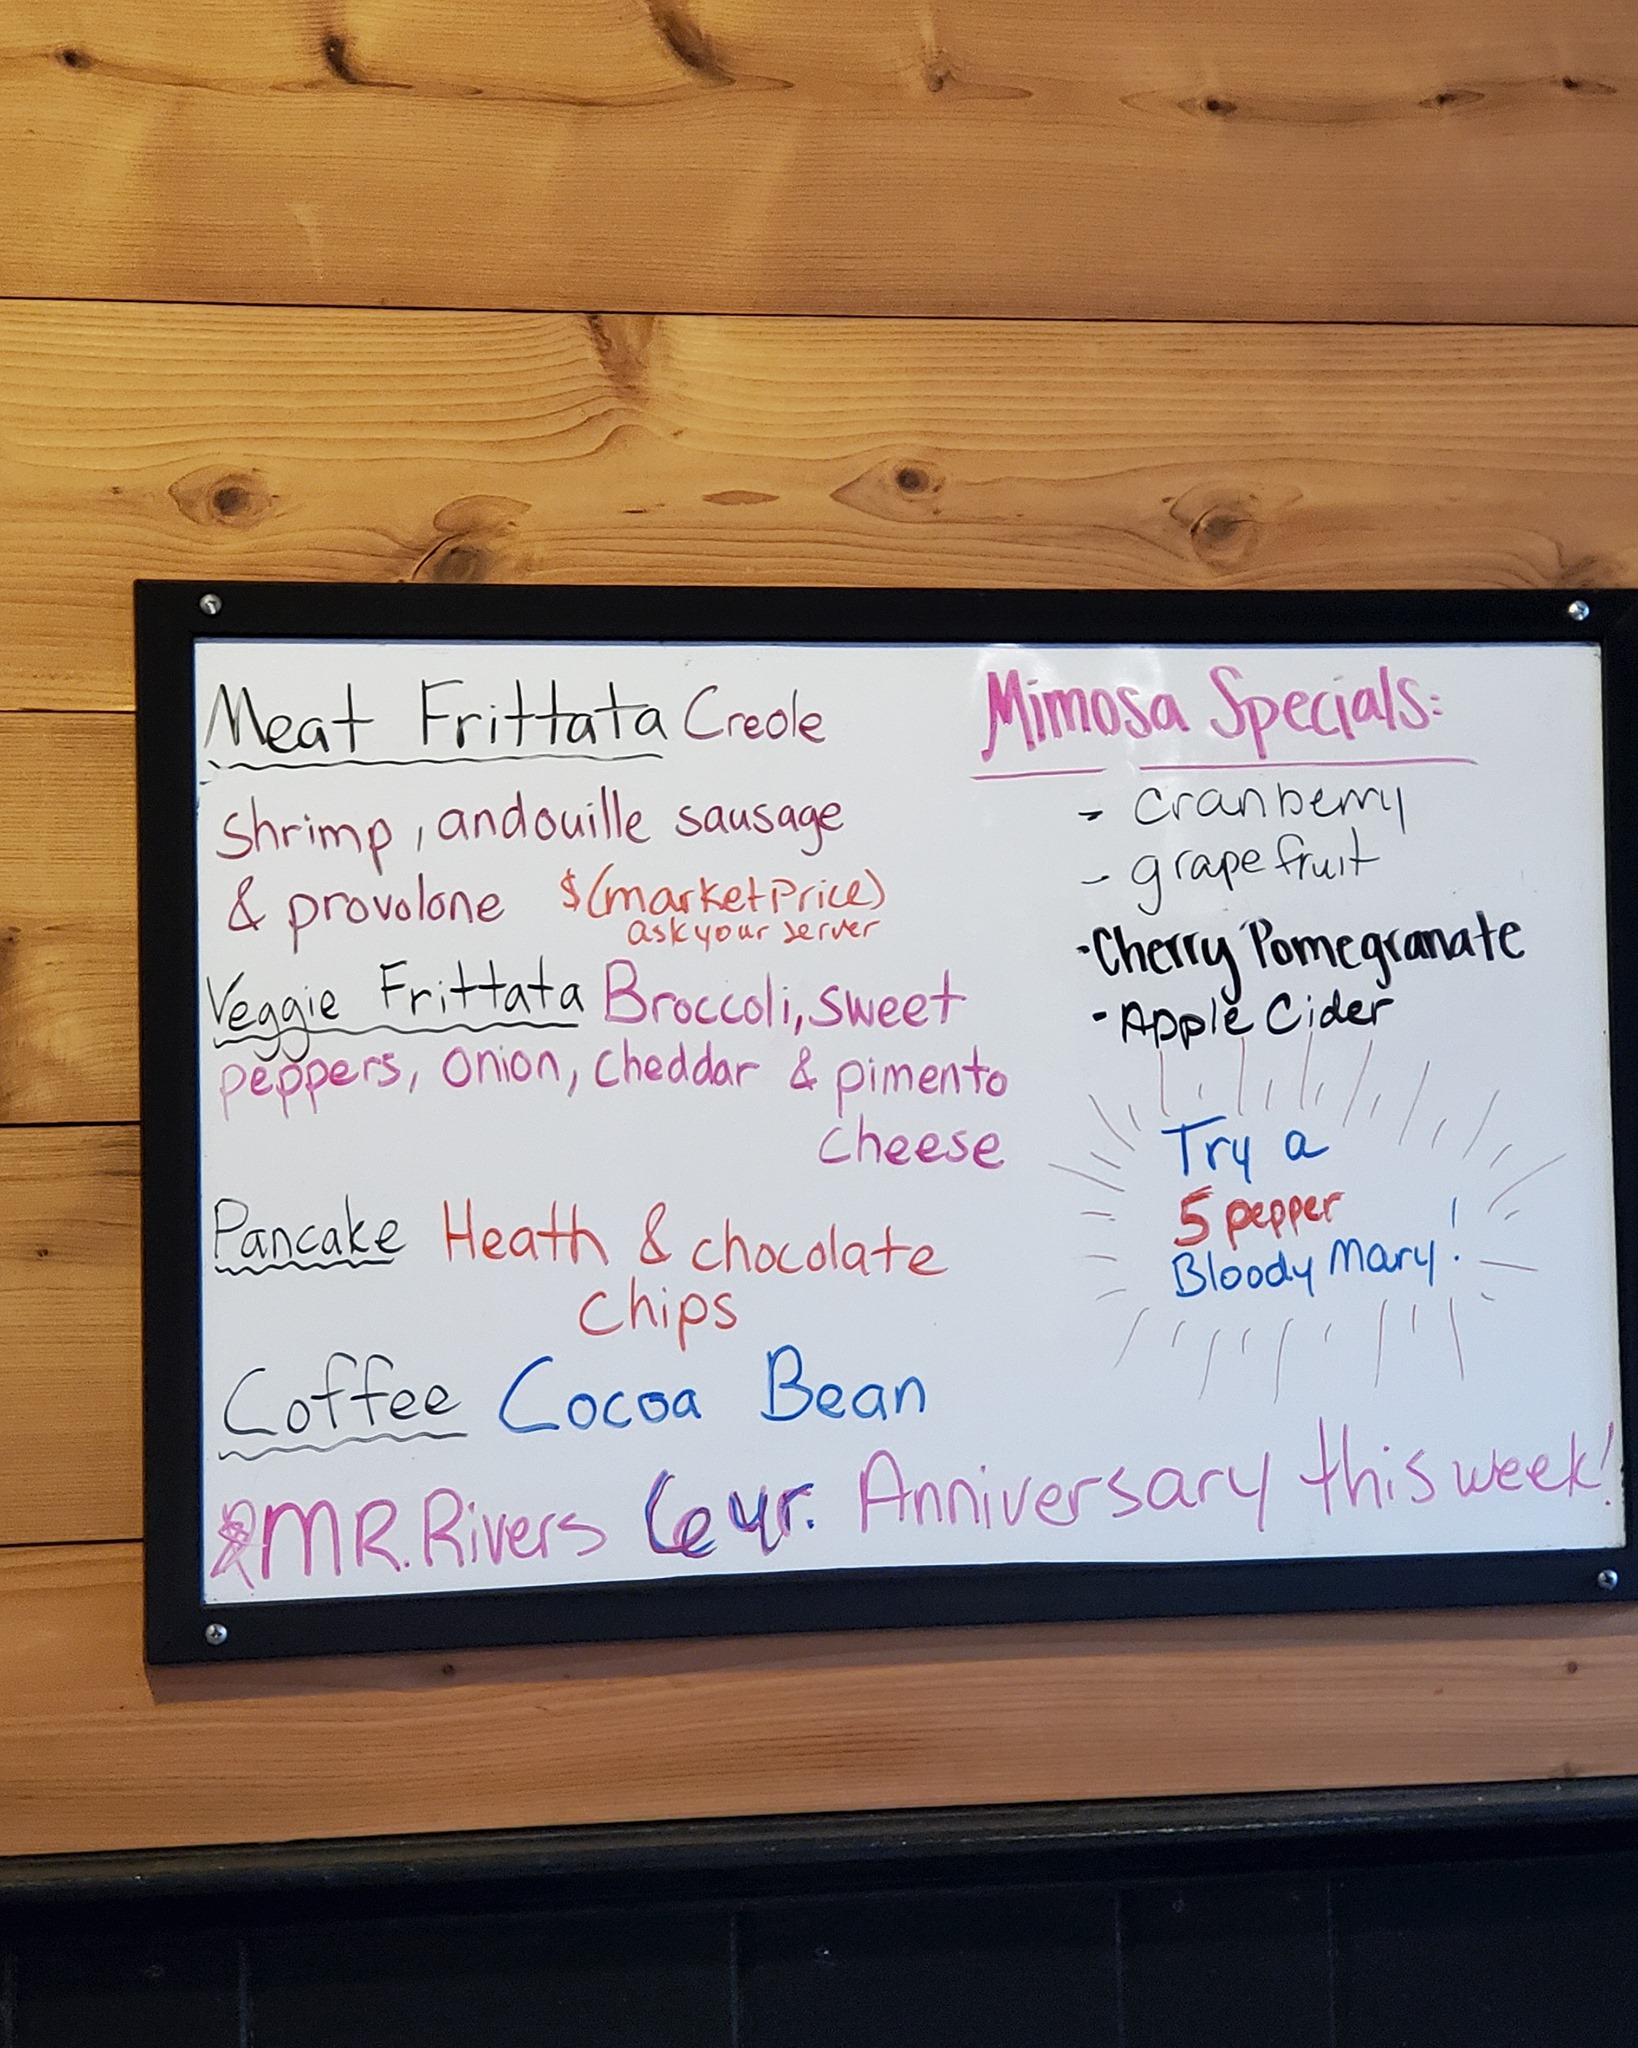 Meat Frittata Creole
shrimp, andouille sausage
& provolone $(market Price)
ask your server
Veggie Frittata Broccoli, sweet
peppers, onion, cheddar & pimento
cheese
Pancake Heath & chocolate
chips
Coffee Cocoa Bean
MR. Rivers 6 yr. Anniversary this week!
Mimosa Specials:
- cranberry
- grapefruit
- Cherry Pomegranate
- Apple Cider
Try a
5 pepper
Bloody Mary!